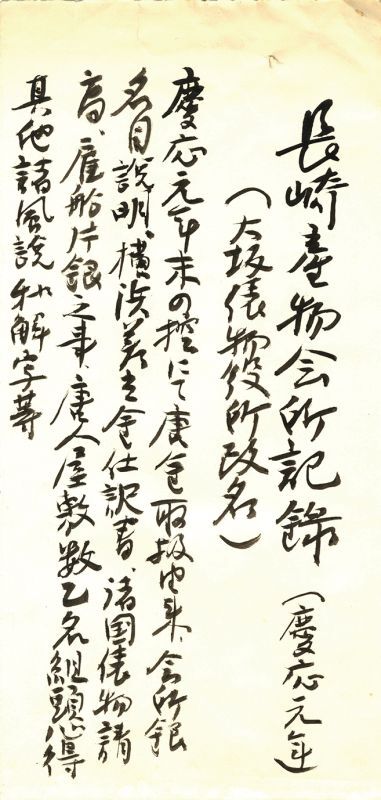 長崎産物会所記録（慶応元年）
（大坂俵物役所改名）
慶応元年末の控にて唐金取扱由来、会所銀
名目説明、横浜差立金仕訳書、諸国俵物請
高、雇船片銀之事、唐人屋敷数乙名組頭心得
其他諸風説和解字等